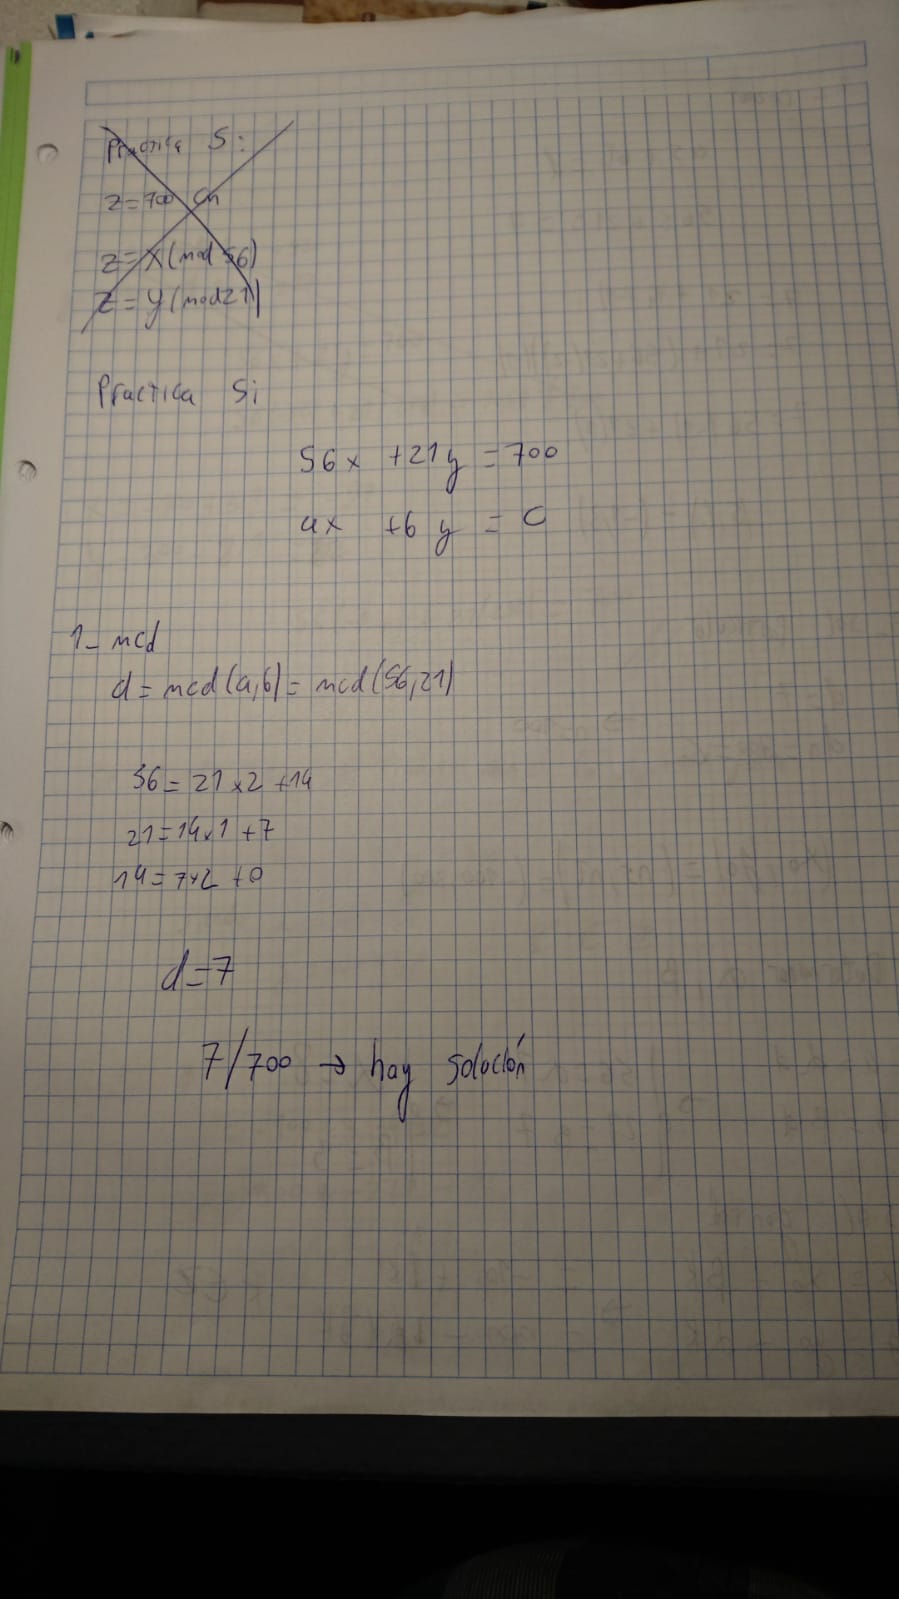 Practica 5:
z=700 cm
z=x(mod 56)
z=y(mod21)
Practica 5:
56x +21y =700
ax +by = C
1- mcd
d=mcd(a,b)=mcd(56,21)
56=21x2+14
21=14x1+7
14=7x2+0
d=7
7/700 → hay solución